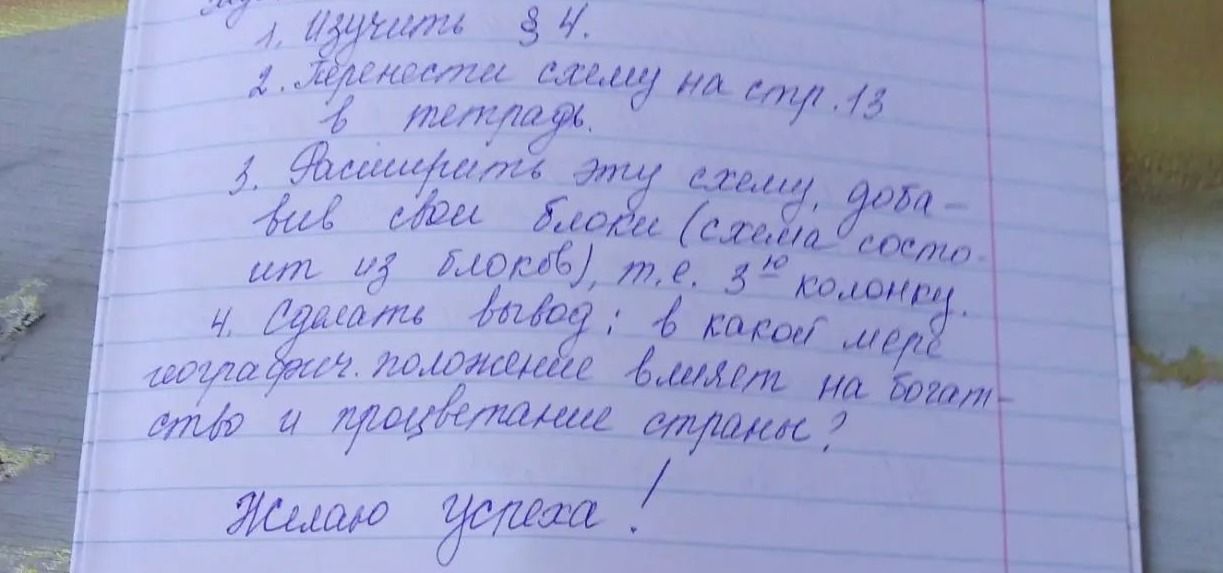 1. Изучить § 4.
2. Перенести схему на стр. 13
в тетрадь.
3. Расширить эту схему, доба-
вив свои блоки (схема состо-
ит из блоков), т.е. 3ю колонку.
4. Сделать вывод: в какой мере
географич. положение влияет на богат-
ство и процветание страны?
Желаю успеха!